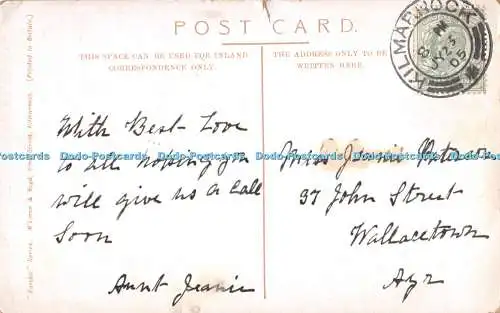 POST CARD.
THIS SPACE CAN BE USED FOR INLAND
CORRESPONDENCE ONLY.
THE ADDRESS ONLY TO BE
WRITTEN HERE.
KILMARNOCK
With Best Love
to all hoping you
will give us a Call
Soon
Aunt Jeanie
Miss Jeanie Paterson
37 John Street
Wallacetown
Ayr
(Printed in Britain.)
Dodo-Postcards Dodo-Postcards Dodo-Postcards Dodo-Postcards Dodo-Postcards